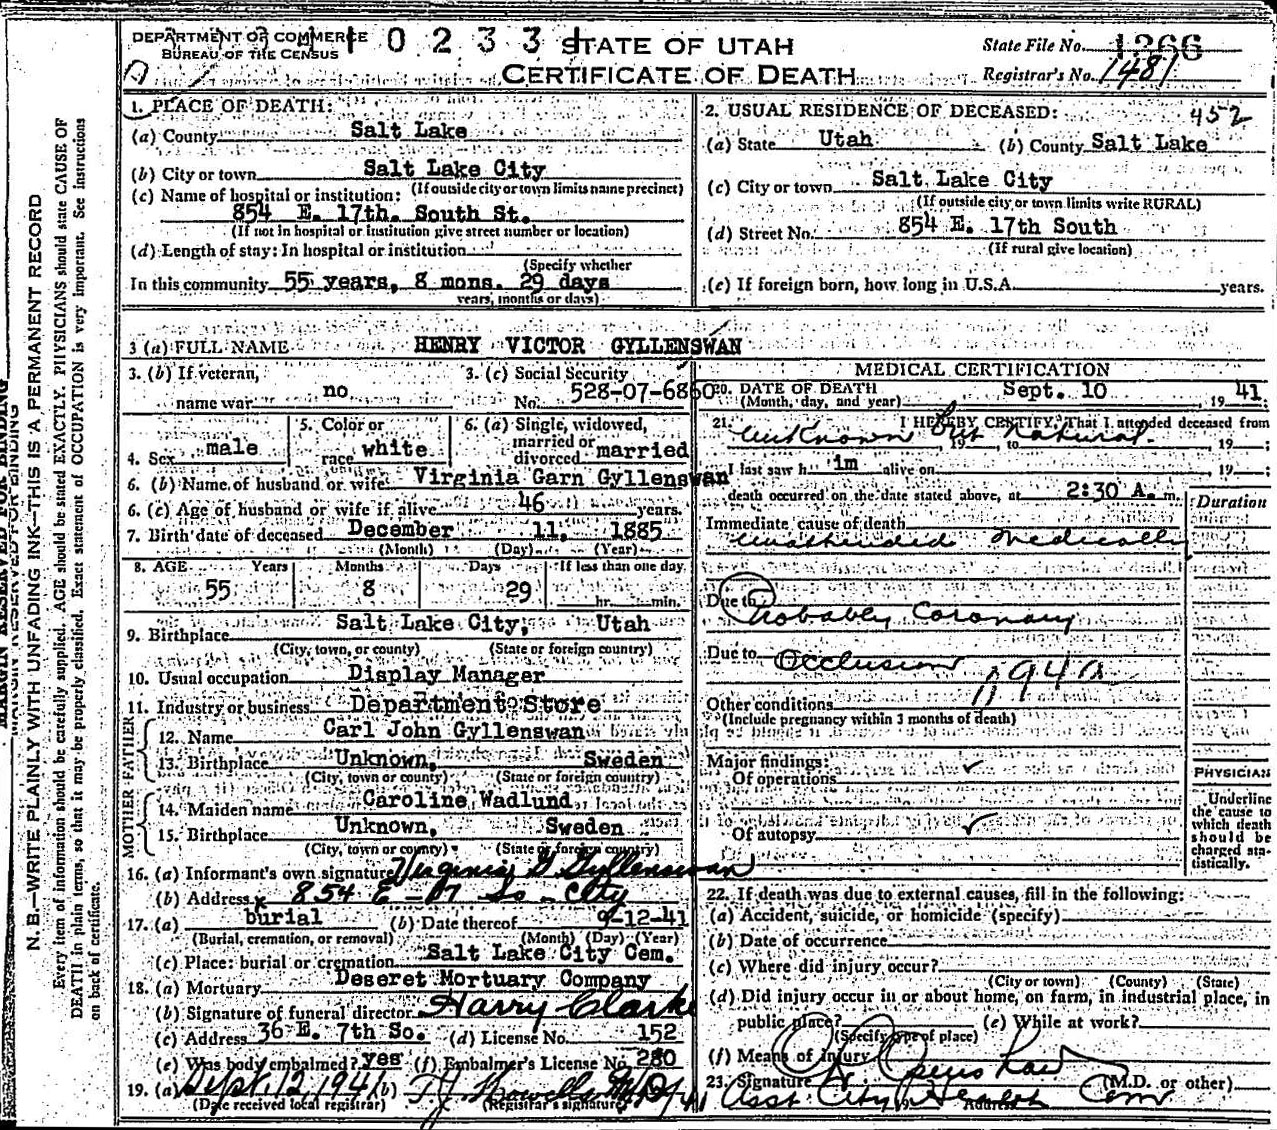 DEPARTMENT OF COMMERCE
BUREAU OF THE CENSUS
0 2 3 3 1
STATE OF UTAH
CERTIFICATE OF DEATH
State File No. 1266
Registrar's No. 1481
MARGIN RESERVED FOR BINDING
N. B.—WRITE PLAINLY WITH UNFADING INK—THIS IS A PERMANENT RECORD
Every item of information should be carefully supplied. AGE should be stated EXACTLY. PHYSICIANS should state CAUSE OF
DEATH in plain terms, so that it may be properly classified. Exact statement of OCCUPATION is very important. See instructions
on back of certificate.
1. PLACE OF DEATH:
(a) County Salt Lake
(b) City or town Salt Lake City
(If outside city or town limits name precinct)
(c) Name of hospital or institution:
854 E. 17th. South St.
(If not in hospital or institution give street number or location)
(d) Length of stay: In hospital or institution
(Specify whether
In this community 55 years, 8 mons. 29 days
years, months or days)
2. USUAL RESIDENCE OF DECEASED: 452
(a) State Utah (b) County Salt Lake
(c) City or town Salt Lake City
(If outside city or town limits write RURAL)
(d) Street No. 854 E. 17th South
(If rural give location)
(e) If foreign born, how long in U.S.A. years.
3 (a) FULL NAME HENRY VICTOR GYLLENSWAN
3. (b) If veteran,
name war no
3. (c) Social Security
No. 528-07-6860
4. Sex male
5. Color or
race white
6. (a) Single, widowed,
married or
divorced married
6. (b) Name of husband or wife Virginia Garn Gyllenswan
6. (c) Age of husband or wife if alive 46 years.
7. Birth date of deceased December 11, 1885
(Month) (Day) (Year)
8. AGE Years Months Days If less than one day
55 8 29 hr. min.
9. Birthplace Salt Lake City, Utah
(City, town, or county) (State or foreign country)
10. Usual occupation Display Manager
11. Industry or business Department Store
FATHER
12. Name Carl John Gyllenswan
13. Birthplace Unknown, Sweden
(City, town or county) (State or foreign country)
MOTHER
14. Maiden name Caroline Wadlund
15. Birthplace Unknown, Sweden
(City, town or county) (State or foreign country)
16. (a) Informant's own signature Virginia G. Gyllenswan
(b) Address 854 E - 17 So - City
17. (a) burial (b) Date thereof 9-12-41
(Burial, cremation, or removal) (Month) (Day) (Year)
(c) Place: burial or cremation Salt Lake City Cem.
18. (a) Mortuary Deseret Mortuary Company
(b) Signature of funeral director Harry Clarke
(c) Address 36 E. 7th So. (d) License No. 152
(e) Was body embalmed? yes (f) Embalmer's License No. 280
19. (a) Sept. 12, 1941 (b)
(Date received local registrar) (Registrar's signature)
MEDICAL CERTIFICATION
20. DATE OF DEATH Sept. 10, 1941
(Month, day, and year)
21. I HEREBY CERTIFY, That I attended deceased from
Unknown but Natural 19 to 19 ;
I last saw him alive on 19 ;
death occurred on the date stated above, at 2:30 A. m.
Duration
Immediate cause of death
Unattended Medically
Due to Probably Coronary
Due to Occlusion
94a
Other conditions
(Include pregnancy within 3 months of death)
Major findings:
Of operations
Of autopsy
PHYSICIAN
Underline
the cause to
which death
should be
charged sta-
tistically.
22. If death was due to external causes, fill in the following:
(a) Accident, suicide, or homicide (specify)
(b) Date of occurrence
(c) Where did injury occur?
(City or town) (County) (State)
(d) Did injury occur in or about home, on farm, in industrial place, in
public place? (e) While at work?
(Specify type of place)
(f) Means of Injury
23. Signature (M.D. or other)
Asst. City Health Com
Address